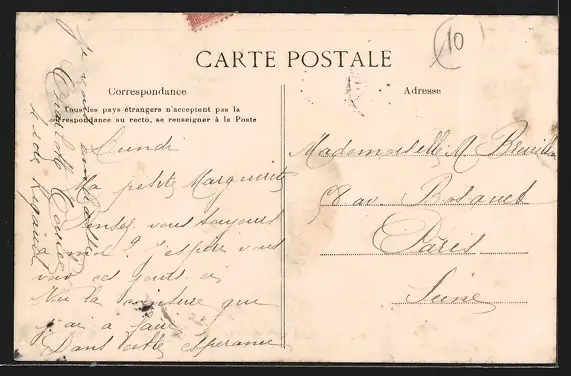 10
CARTE POSTALE
Correspondance
Tous les pays étrangers n'acceptent pas la
correspondance au recto, se renseigner à la Poste
Adresse
Lundi
Ma petite Marguerite
Pensez vous toujours
à moi ? J'espère vous
voir ces jours ci
la ceinture que
j'ai à faire
Dans cette esperance
Je vous
Mademoiselle M
58 av. Bosquet
Paris
Seine